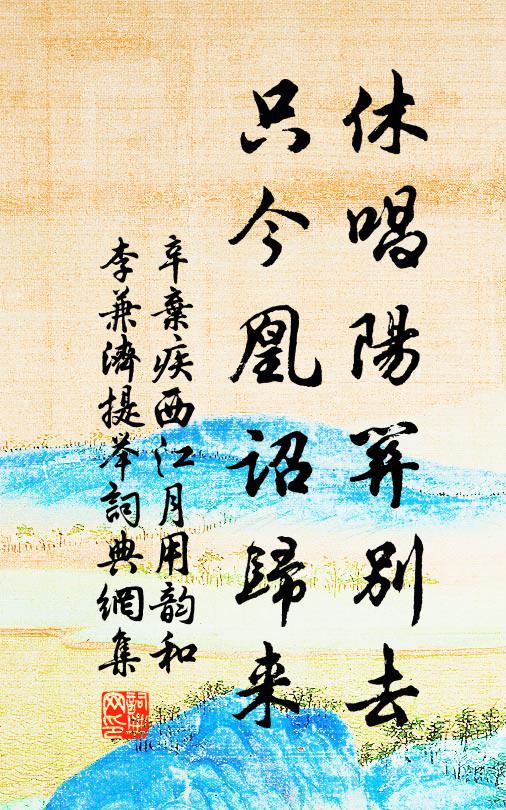 休唱陽關別去
只今凰詔歸来
辛棄疾西江月用韵和
李兼濟提举詞典網集